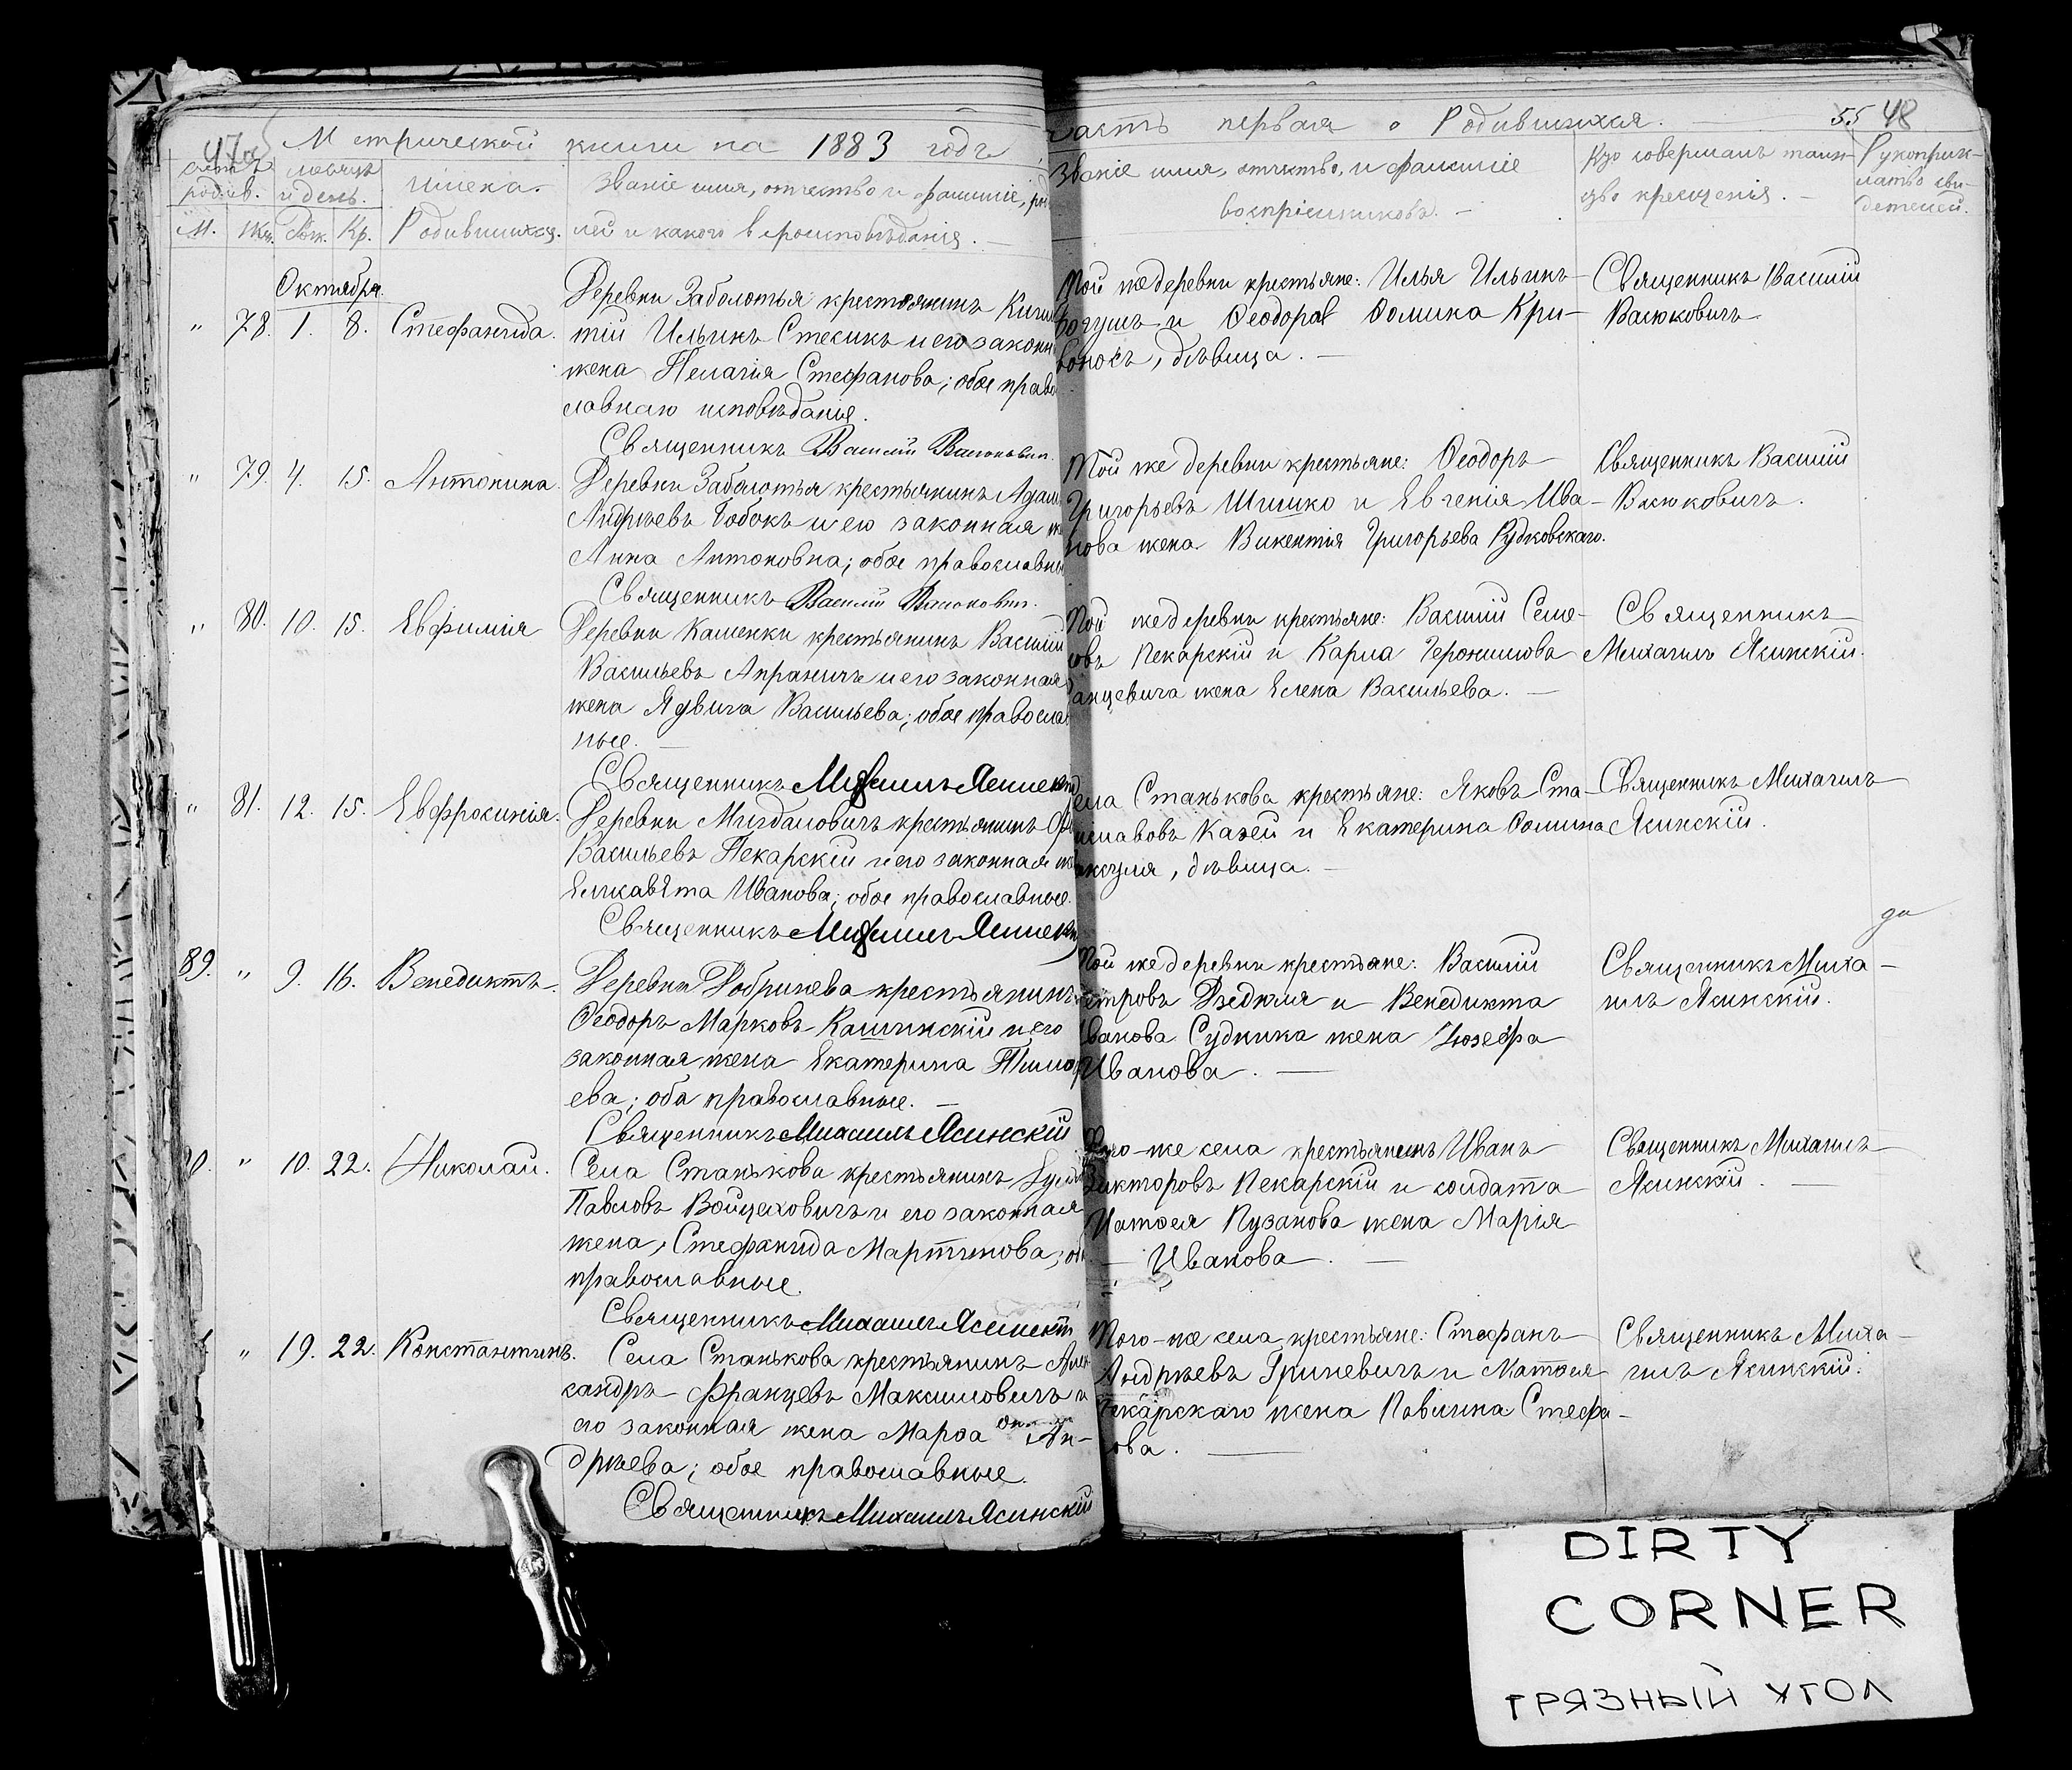 Метрической книги на 1883 годъ
часть первая о Родившихся. 55 48
счетъ родив. месяцъ и день. имена. Званіе имя, отчество и фамиліе,
Званіе имя, отчество, и фамиліе Кто совершалъ таин- Рукоприк-
воспріемниковъ. - ство крещенія. - латво сви-
детелей.
М. Жен. Рож. Кр. Родившихся. лей и какого вероисповѣданія. -
Октября.
" 78. 1. 8. Стефанида.
Деревни Заболотья крестьянинъ
тій Ильинъ Стесикъ и его законн
жена Пелагія Стефанова; обое право
славнаго исповѣданія.
Священникъ Василій Васюковичъ.
Той же деревни крестьяне: Илья Ильинъ
Богушъ и Ѳеодора Ѳомина Кри-
воносъ, дѣвица. -
Священникъ Василій
Васюковичъ
" 79. 4. 15. Антонина.
Деревни Заболотья крестьянинъ Адам
Андреевъ Бобокъ и его законная же
Анна Антоновна; обое православны
Священникъ Василій Васюковичъ.
Той же деревни крестьяне: Ѳеодоръ
Григорьевъ Шишко и Евгенія Ива-
нова жена Викентія Григорьева Рудковскаго.
Священникъ Василій
Васюковичъ.
" 80. 10. 15. Евфимія
Деревни Каменки крестьянинъ Василій
Васильевъ Апраничъ и его законная
жена Ядвига Васильева; обое правосла
ные. -
Священникъ Михаилъ Ясинскій
Той же деревни крестьяне: Василій Семе-
овъ Пекарскій и Карла Геронимова
анцевича жена Елена Васильева. -
Священникъ
Михаилъ Ясинскій.
" 81. 12. 15. Евфросинія.
Деревни Мигдаловичъ крестьянинъ
Васильевъ Пекарскій и его законная же
Елисавѣта Иванова; обое православные.
Священникъ Михаилъ Ясинскій
ела Станькова крестьяне: Яковъ Ста-
ниславовъ Казей и Екатерина Ѳомина
дѣвица. -
Священникъ Михаилъ
Ясинскій.
89. " 9. 16. Венедиктъ.
Деревни Добринева крестьянинъ
Ѳеодоръ Марковъ Кашинскій и его
законная жена Екатерина
ева; оба православные. -
Священникъ Михаилъ Ясинскій
Той же деревни крестьяне: Василій
Петровъ Дзедюля и Венедикта
Иванова Судника жена Юзефа
Иванова. -
Священникъ Миха-
илъ Ясинскій.
0. " 10. 22. Николай.
Села Станькова крестьянинъ
Павловъ Войцеховичъ и его законная
жена, Стефанида Мартинова; об
православные.
Священникъ Михаилъ Ясинскій
Того-же села крестьянинъ Иванъ
Викторовъ Пекарскій и солдата
Матѳея Пузанова жена Марія
- Иванова. -
Священникъ Михаилъ
Ясинскій. -
" 19. 22. Константинъ.
Села Станькова крестьянинъ Алек
сандръ Францевъ Максимовичъ и
его законная жена Марѳа Ан-
дреева; обое православные.
Священникъ Михаилъ Ясинскій
Того-же села крестьяне: Стефанъ
Андреевъ Гриневичъ и Матѳея
Пекарскаго жена Павлина Стефа-
нова. -
Священникъ Миха-
илъ Ясинскій.
DIRTY
CORNER
ГРЯЗНЫЙ УГОЛ